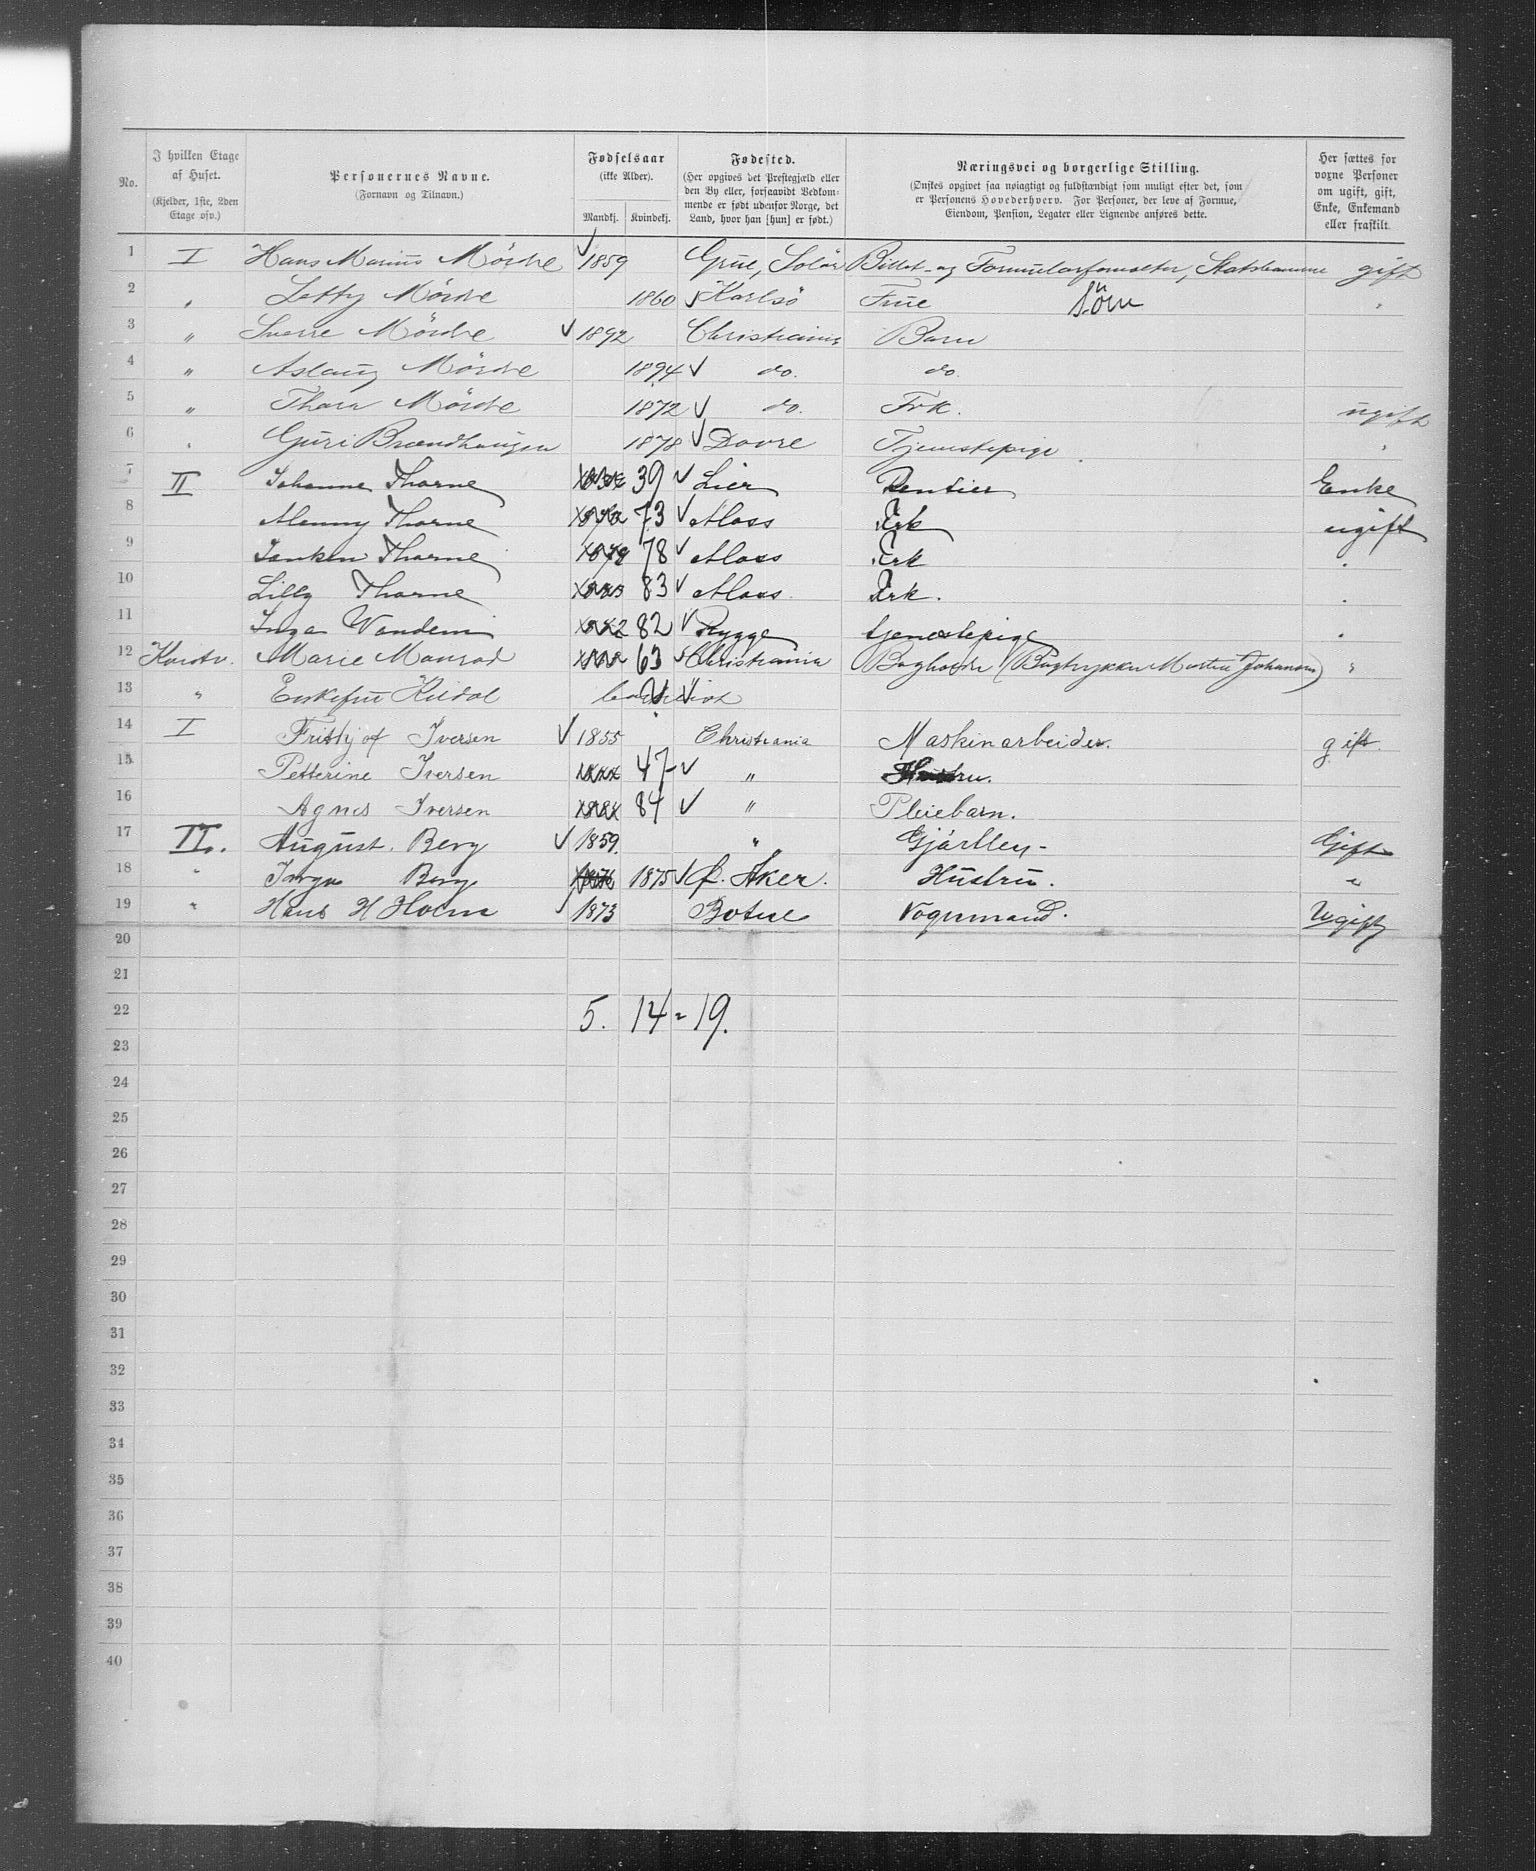 No.
I hvilken Etage af Huset. (Kjelder, 1ste, 2den Etage osv.)
Personernes Navne. (Fornavn og Tilnavn.)
Fødselsaar (ikke Alder). Mandkj. Kvindekj.
Fødested. (Her opgives det Prestegjæld eller den By eller, forsaavidt Vedkommende er født udenfor Norge, det Land, hvor han [hun] er født.)
Næringsvei og borgerlige Stilling. (Ønskes opgivet saa nøiagtigt og fuldstændigt som muligt efter det, som er Personens Hovederhverv. For Personer, der leve af Formue, Eiendom, Pension, Legater eller Lignende anføres dette.)
Her sættes for voxne Personer om ugift, gift, Enke, Enkemand eller fraskilt.
1 I Hans Marius Mördre √ 1859 Grue, Solör Billet- og Formularforvalter, Statsbanerne gift
2 " Letty Mördre 1860 √ Karlsö Frue "
3 " Sverre Mördre √ 1892 Christiania Barn
4 " Aslaug Mördre 1894 √ do. do.
5 " Thora Mördre 1872 √ do. Frk. ugift
6 " Guri Brændhaugen 1878 √ Dovre Tjenestepige "
7 II Johanne Thorne 39 √ Lier Rentier Enke
8 Thorne 73 √ Moss Frk ugift
9 Thorne 78 √ Moss Frk "
10 Lilly Thorne 83 √ Moss Frk. "
11 Inga 82 √ Rygge tjenestepige "
12 Kvistv. Marie Monrad 63 √ Christiania (Bogtrykker Johansen) "
13 " Enkefru Kildal √
14 I Frithjof Iversen √ 1855 Christiania Maskinarbeider. gift.
15 Petterine Iversen 47 √ " Hustru.
16 Agnes Iversen 84 √ " Pleiebarn.
17 II. August. Berg √ 1859. " Gjørtler- Gift
18 " Berg 1875 √ Ø. Aker. Hustru. "
19 " Hans H Holm √ 1873 Botne Vognmand. Ugift
20
21
22 5. 14 = 19.
23
24
25
26
27
28
29
30
31
32
33
34
35
36
37
38
39
40